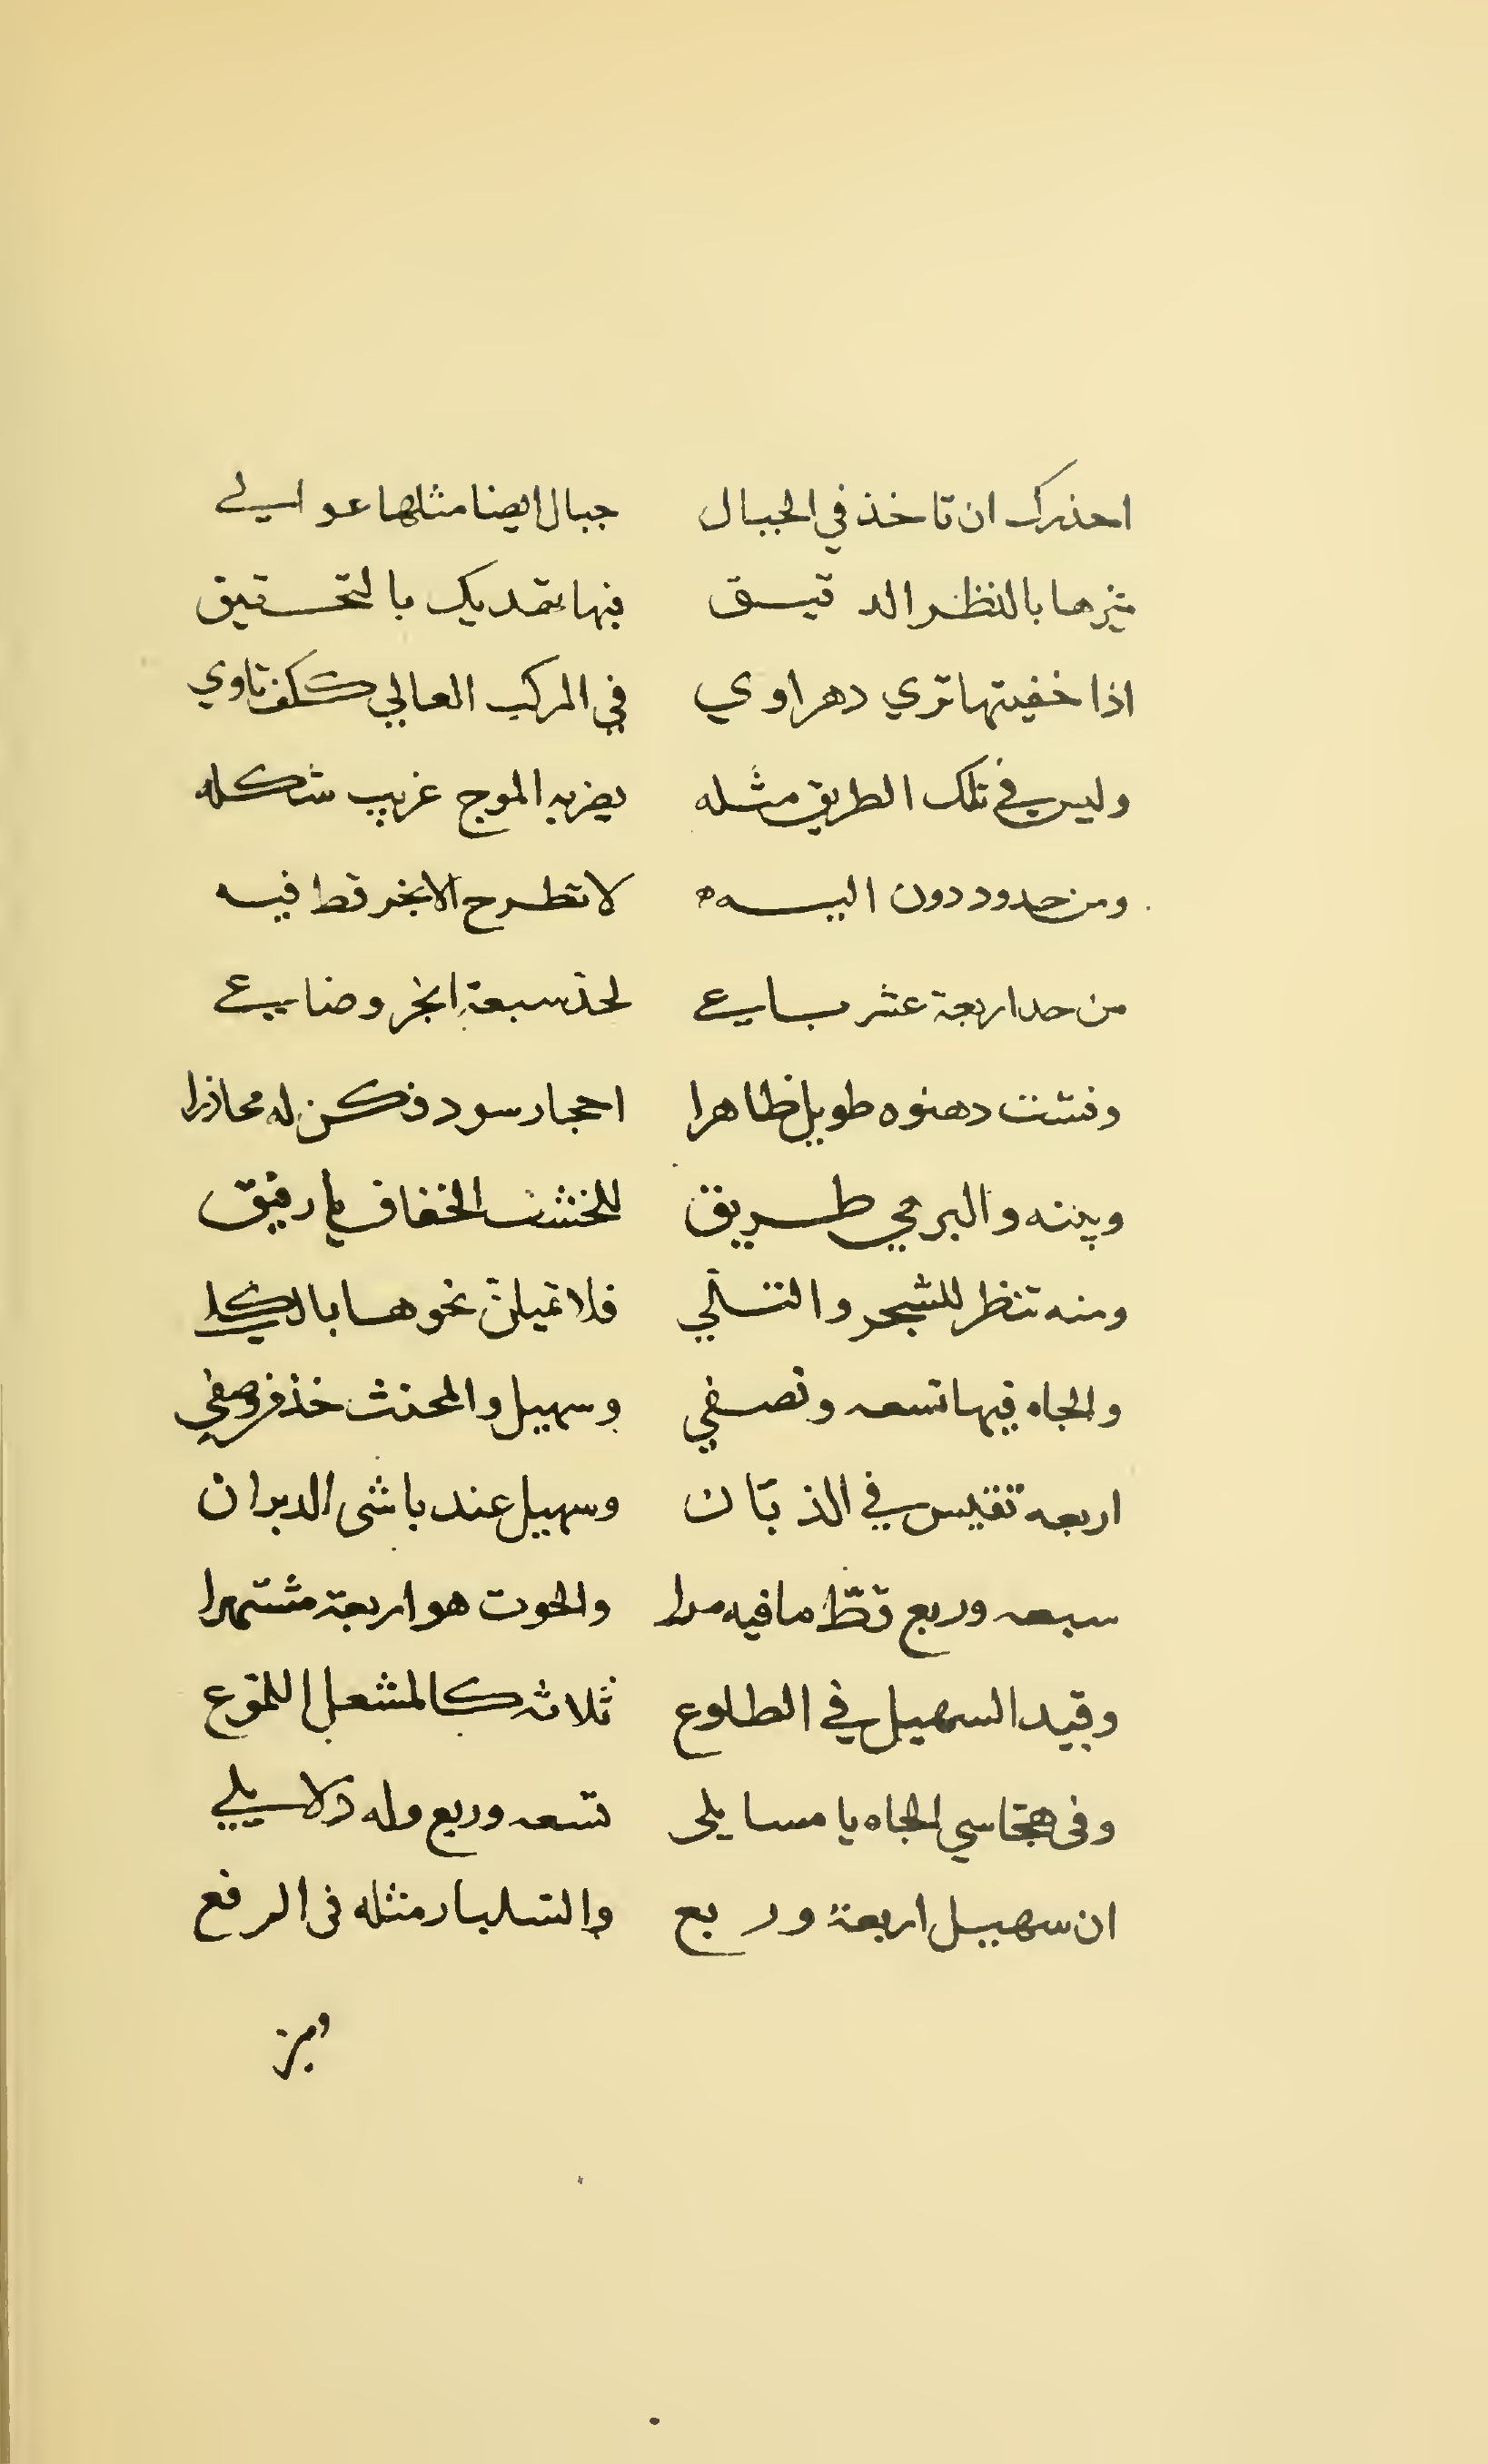 احذرك ان تاخذ في الجبال جبال ايضا مثلها عوالي
ميزها بالنظر الدقيق فيها تقديك بالتحقيق
اذا خفيتها تري دهراوي في المركب العالي ككف تاوي
وليس في تلك الطريق مثله يضربه الموج غريب شكله
ومن حدود دون البيه لا تطرح الانجر قط فيه
من حد اربعة عشر باع لحد سبعة انجر وضايع
وفشت دهنوه طويل ظاهرا احجار سود فكن له محاذرا
وبينه والبر محي طريق للخشب الخفاف يا رفيق
ومنه تنظر للشجر والتالي فلا تميلن نحوها بالكل
والجاه فيها تسعه ونصفي وسهيل والمحنث خذ
اربعه تقيس في الذبان وسهيل عند باشى الدبران
سبعه وربع قط ما فيه مرا والحوت هو اربعة مشتهرا
وقيد السهيل في الطلوع ثلاثه كالمشعل اللموع
وفى الجاه يا مسايلى تسعه وربع وله دلايلي
ان سهيل اربعة وربع والسلبار مثله فى الرفع